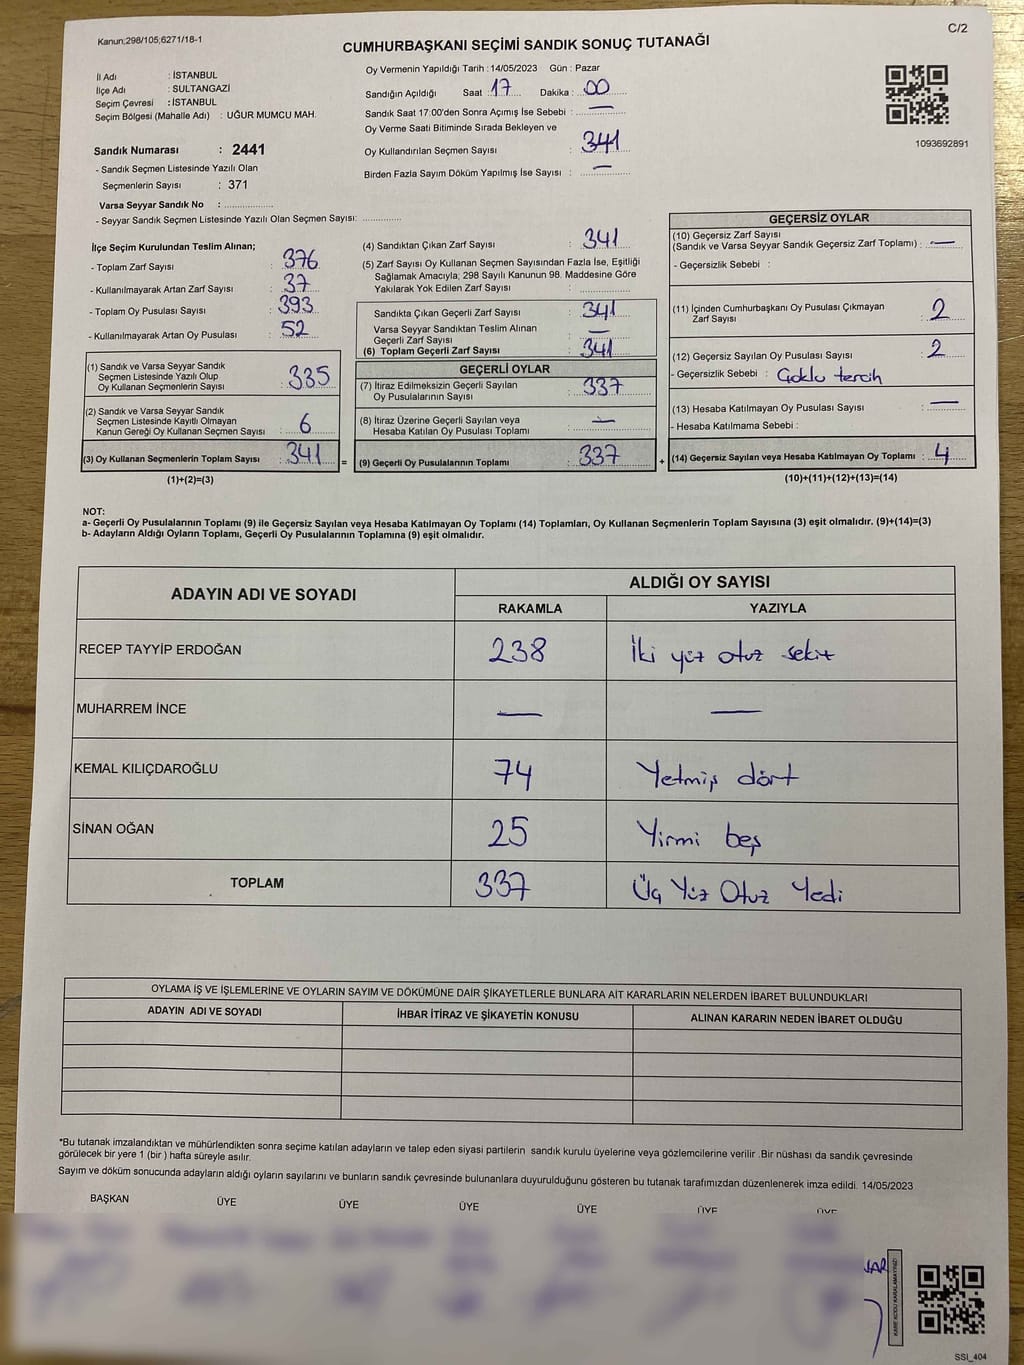 Kanun;298/105;6271/18-1
C/2
CUMHURBAŞKANI SEÇİMİ SANDIK SONUÇ TUTANAĞI
İl Adı : İSTANBUL
İlçe Adı : SULTANGAZİ
Seçim Çevresi : İSTANBUL
Seçim Bölgesi (Mahalle Adı) : UĞUR MUMCU MAH.
Sandık Numarası : 2441
- Sandık Seçmen Listesinde Yazılı Olan
Seçmenlerin Sayısı : 371
Varsa Seyyar Sandık No : ..............
- Seyyar Sandık Seçmen Listesinde Yazılı Olan Seçmen Sayısı: ............
Oy Vermenin Yapıldığı Tarih : 14/05/2023 Gün : Pazar
Sandığın Açıldığı Saat : 17 Dakika : 00
Sandık Saat 17:00'den Sonra Açımış İse Sebebi : —
Oy Verme Saati Bitiminde Sırada Bekleyen ve
Oy Kullandırılan Seçmen Sayısı : 341
Birden Fazla Sayım Döküm Yapılmış İse Sayısı : —
1093692891
İlçe Seçim Kurulundan Teslim Alınan;
- Toplam Zarf Sayısı : 376
- Kullanılmayarak Artan Zarf Sayısı : 37
- Toplam Oy Pusulası Sayısı : 393
- Kullanılmayarak Artan Oy Pusulası : 52
(1) Sandık ve Varsa Seyyar Sandık
Seçmen Listesinde Yazılı Olup
Oy Kullanan Seçmenlerin Sayısı : 335
(2) Sandık ve Varsa Seyyar Sandık
Seçmen Listesinde Kayıtlı Olmayan
Kanun Gereği Oy Kullanan Seçmen Sayısı : 6
(3) Oy Kullanan Seçmenlerin Toplam Sayısı : 341 =
(1)+(2)=(3)
(4) Sandıktan Çıkan Zarf Sayısı : 341
(5) Zarf Sayısı Oy Kullanan Seçmen Sayısından Fazla İse, Eşitliği
Sağlamak Amacıyla; 298 Sayılı Kanunun 98. Maddesine Göre
Yakılarak Yok Edilen Zarf Sayısı : ..............
Sandıkta Çıkan Geçerli Zarf Sayısı : 341
Varsa Seyyar Sandıktan Teslim Alınan
Geçerli Zarf Sayısı : —
(6) Toplam Geçerli Zarf Sayısı : 341
GEÇERLİ OYLAR
(7) İtiraz Edilmeksizin Geçerli Sayılan
Oy Pusulalarının Sayısı : 337
(8) İtiraz Üzerine Geçerli Sayılan veya
Hesaba Katılan Oy Pusulası Toplamı : —
(9) Geçerli Oy Pusulalarının Toplamı : 337 +
GEÇERSİZ OYLAR
(10) Geçersiz Zarf Sayısı
(Sandık ve Varsa Seyyar Sandık Geçersiz Zarf Toplamı) : —
- Geçersizlik Sebebi :
(11) İçinden Cumhurbaşkanı Oy Pusulası Çıkmayan
Zarf Sayısı : 2
(12) Geçersiz Sayılan Oy Pusulası Sayısı : 2
- Geçersizlik Sebebi : Çoklu tercih
(13) Hesaba Katılmayan Oy Pusulası Sayısı : —
- Hesaba Katılmama Sebebi :
(14) Geçersiz Sayılan veya Hesaba Katılmayan Oy Toplamı : 4
(10)+(11)+(12)+(13)=(14)
NOT:
a- Geçerli Oy Pusulalarının Toplamı (9) ile Geçersiz Sayılan veya Hesaba Katılmayan Oy Toplamı (14) Toplamları, Oy Kullanan Seçmenlerin Toplam Sayısına (3) eşit olmalıdır. (9)+(14)=(3)
b- Adayların Aldığı Oyların Toplamı, Geçerli Oy Pusulalarının Toplamına (9) eşit olmalıdır.
ADAYIN ADI VE SOYADI ALDIĞI OY SAYISI
RAKAMLA YAZIYLA
RECEP TAYYİP ERDOĞAN 238 İki yüz otuz sekiz
MUHARREM İNCE — —
KEMAL KILIÇDAROĞLU 74 Yetmiş dört
SİNAN OĞAN 25 Yirmi beş
TOPLAM 337 Üç Yüz Otuz Yedi
OYLAMA İŞ VE İŞLEMLERİNE VE OYLARIN SAYIM VE DÖKÜMÜNE DAİR ŞİKAYETLERLE BUNLARA AİT KARARLARIN NELERDEN İBARET BULUNDUKLARI
ADAYIN ADI VE SOYADI İHBAR İTİRAZ VE ŞİKAYETİN KONUSU ALINAN KARARIN NEDEN İBARET OLDUĞU
*Bu tutanak imzalandıktan ve mühürlendikten sonra seçime katılan adayların ve talep eden siyasi partilerin sandık kurulu üyelerine veya gözlemcilerine verilir .Bir nüshası da sandık çevresinde
görülecek bir yere 1 (bir ) hafta süreyle asılır.
Sayım ve döküm sonucunda adayların aldığı oyların sayılarını ve bunların sandık çevresinde bulunanlara duyurulduğunu gösteren bu tutanak tarafımızdan düzenlenerek imza edildi. 14/05/2023
BAŞKAN ÜYE ÜYE ÜYE ÜYE ÜYE ÜYE
KARE KODU KARALAMAYINIZ!
SSI_404